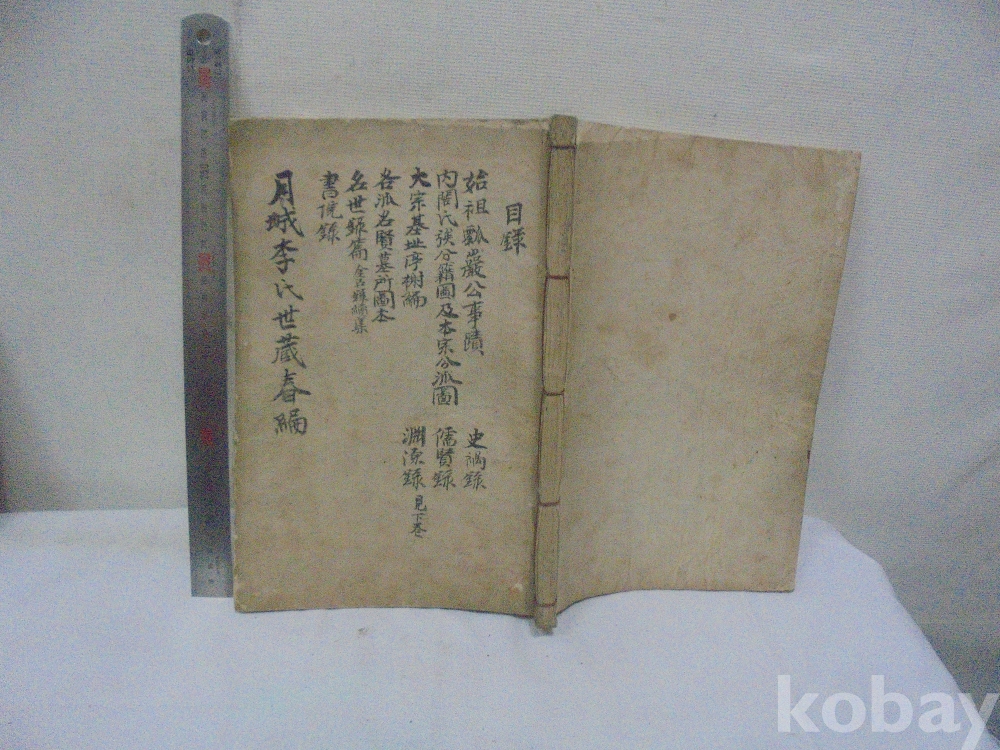 目録
始祖瓢巖公事蹟 史禍錄
內閣氏族分籍圖及本宗分派圖 儒賢錄
大宗基址序榭編 淵源錄 見下卷
各派名賢墓所圖本
名世錄篇
書院錄
月城李氏世藏春編
kobay